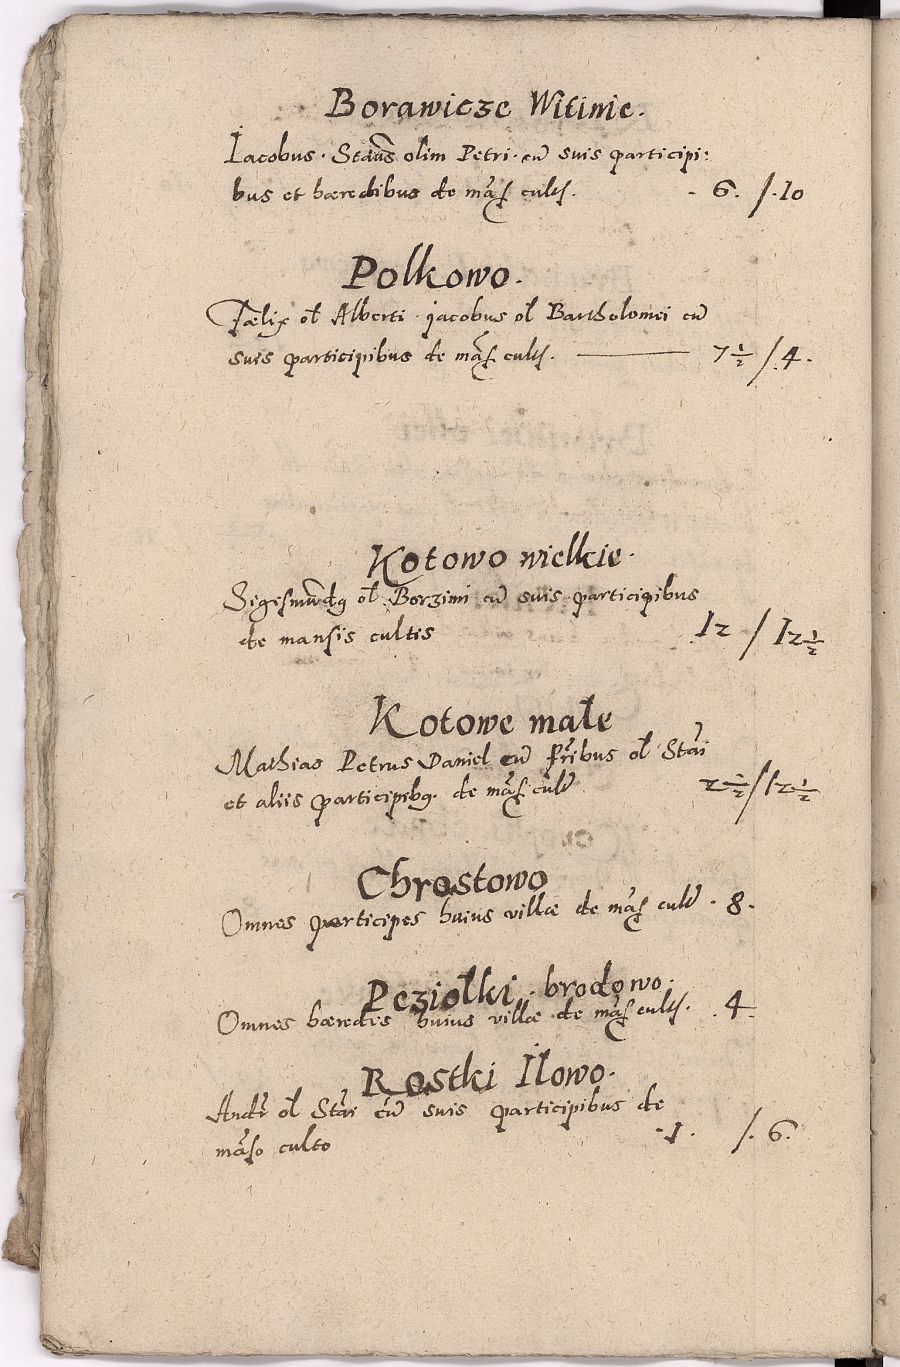 Borawicze Witinie.
Iacobus. Staūs olim Petri. cū suis participi:
bus et hæredibus de māſ cultſ. - 6. /. 10
Polkowo.
Fælix ol Alberti. jacobus ol Bartholomei cū
suis participibus de māſ cultſ. 7 1/2 /. 4.
Kotowo wielkie.
Sigeſmūdꝯ ol Borzimi cū suis participibus
de mansis cultis 12 / 12 1/2
Kotowe małe
Mathias Petrus Daniel cū fr̄ibus ol Stāi
et aliis participibꝯ. de māſ cult 2 1/2 / 12 1/2
Chrostowo
Omnes participes huius villæ de māſ cult . 8.
Peziołki. brodowo.
Omnes hæredes huius villæ de māſ cultſ. . 4.
Rostki Ilowo.
Andr ol Stāi cū suis participibus de
māſo culto . 1. /. 6.